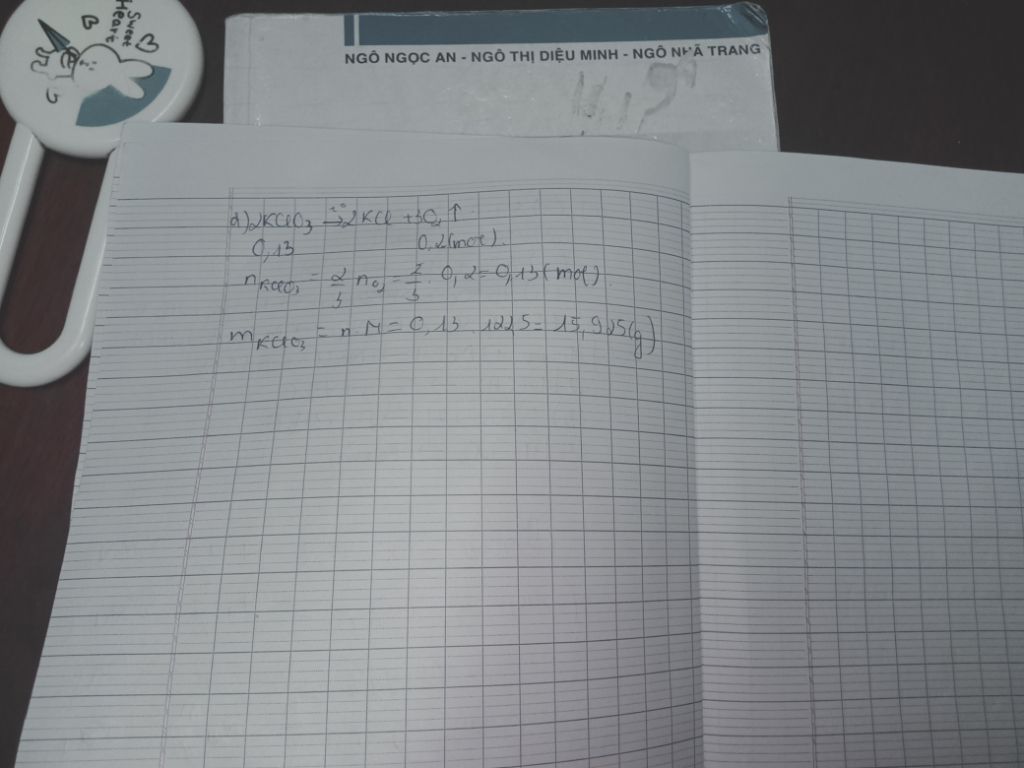 Sweet
Heart
NGÔ NGỌC AN - NGÔ THỊ DIỆU MINH - NGÔ NHÃ TRANG
d) 2KClO₃ →t° 2KCl + 3O₂ ↑
0,13 0,2 (mol).
nKClO₃ = 2/3 nO₂ = 2/3 . 0,2 = 0,13 (mol).
mKClO₃ = n.M = 0,13 . 122,5 = 15,925 (g)